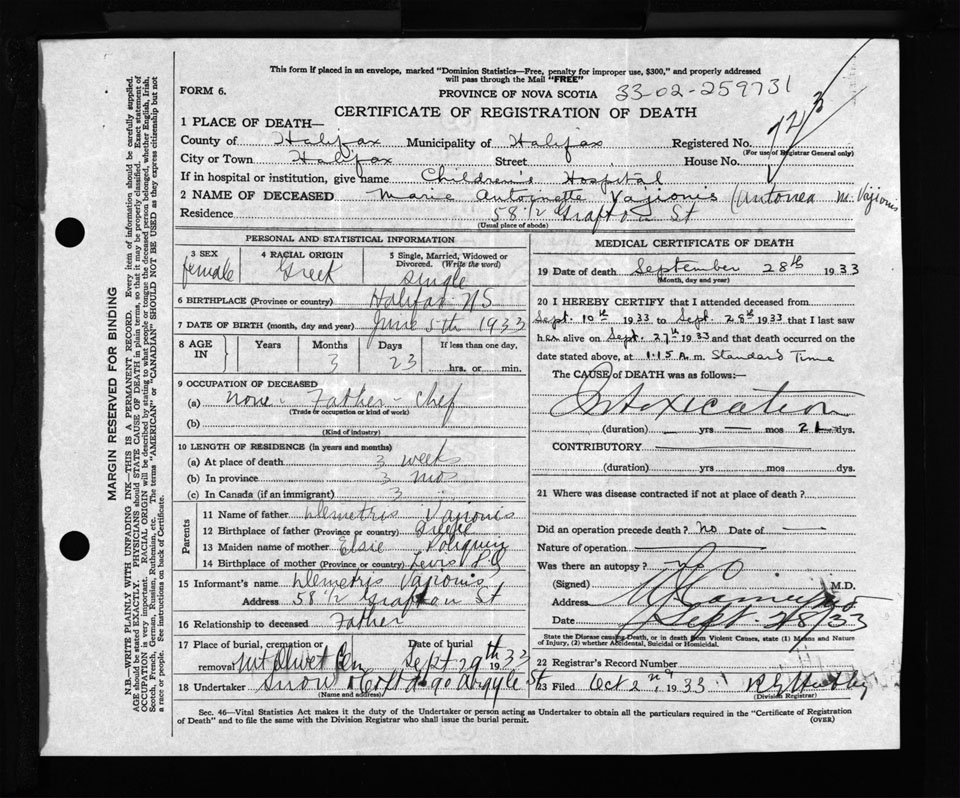 This form if placed in an envelope, marked "Dominion Statistics—Free, penalty for improper use, $300," and properly addressed
will pass through the Mail "FREE"
FORM 6.
PROVINCE OF NOVA SCOTIA 33-02-259731
CERTIFICATE OF REGISTRATION OF DEATH
1 PLACE OF DEATH—
County of Halifax Municipality of Halifax Registered No. 723
(For use of Registrar General only)
City or Town Halifax Street House No.
If in hospital or institution, give name Children's Hospital
2 NAME OF DECEASED Marie Antoinette Vajionis (Antonea M. Vajionis
Residence 58 1/2 Grafton St
(Usual place of abode)
PERSONAL AND STATISTICAL INFORMATION
3 SEX female
4 RACIAL ORIGIN Greek
5 Single, Married, Widowed or
Divorced. (Write the word)
single
6 BIRTHPLACE (Province or country) Halifax NS
7 DATE OF BIRTH (month, day and year) June 5th 1933
8 AGE IN Years Months 3 Days 23 If less than one day,
hrs. or min.
9 OCCUPATION OF DECEASED
(a) none - Father - Chef
(Trade or occupation or kind of work)
(b)
(Kind of industry)
10 LENGTH OF RESIDENCE (in years and months)
(a) At place of death 3 weeks
(b) In province 3 mos
(c) In Canada (if an immigrant) 3
Parents
11 Name of father Demetris Vajionis
12 Birthplace of father (Province or country) Greece
13 Maiden name of mother Elsie Poliquin
14 Birthplace of mother (Province or country) Levis P Q
15 Informant's name Demetris Vajionis
Address 58 1/2 Grafton St
16 Relationship to deceased Father
17 Place of burial, cremation or Date of burial
removal Mt Olivet Cem Sept 29th 1933
18 Undertaker Snow & Co Ltd 90 Argyle St
(Name and address)
MEDICAL CERTIFICATE OF DEATH
19 Date of death September 28th 1933
(Month, day and year)
20 I HEREBY CERTIFY that I attended deceased from
Sept. 10th 1933 to Sept. 28th 1933 that I last saw
her alive on Sept. 27th 1933 and that death occurred on the
date stated above, at 1.15 A.m. Standard Time
The CAUSE OF DEATH was as follows:—
Intoxication
(duration) — yrs — mos 21 dys.
CONTRIBUTORY
(duration) yrs. mos. dys.
21 Where was disease contracted if not at place of death?
Did an operation precede death? No Date of —
Nature of operation
Was there an autopsy? No
(Signed) M.D.
Address
Date Sept. 28/33
State the Disease causing Death, or in death from Violent Causes, state (1) Means and Nature
of Injury, (2) whether Accidental, Suicidal or Homicidal.
22 Registrar's Record Number
23 Filed Oct 2nd 1933
(Division Registrar)
Sec. 46—Vital Statistics Act makes it the duty of the Undertaker or person acting as Undertaker to obtain all the particulars required in the "Certificate of Registration
of Death" and to file the same with the Division Registrar who shall issue the burial permit. (OVER)
MARGIN RESERVED FOR BINDING
N.B.—WRITE PLAINLY WITH UNFADING INK—THIS IS A PERMANENT RECORD. Every item of information should be carefully supplied.
AGE should be stated EXACTLY. PHYSICIANS should STATE CAUSE OF DEATH in plain terms, so that it may be properly classified. Exact statement of
OCCUPATION is very important. RACIAL ORIGIN will be described by stating to what people or tongue the deceased person belonged, whether English, Irish,
Scotch, French, German, Russian, Ruthenian, etc. The terms "AMERICAN" or "CANADIAN" SHOULD NOT BE USED as they express citizenship but not
a race or people. See instructions on back of Certificate.